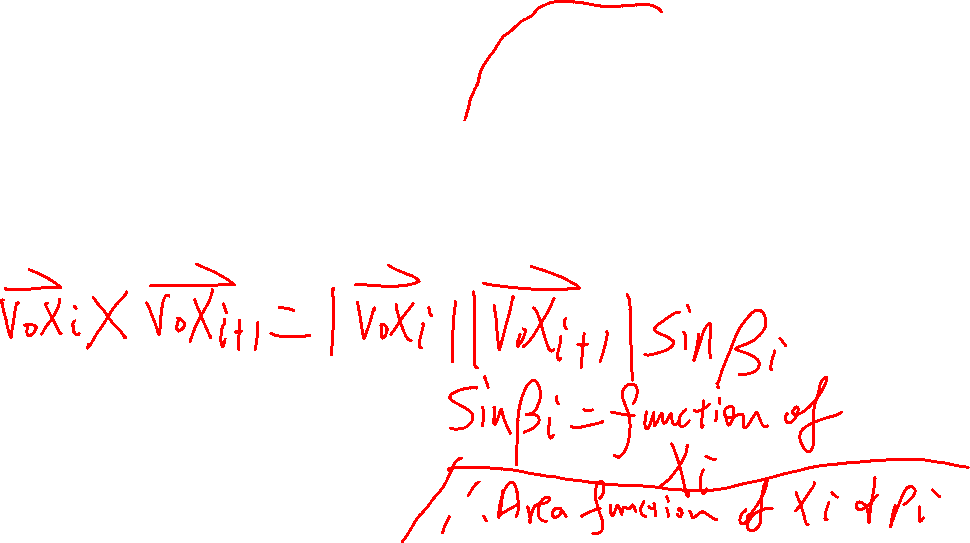 V₀Xᵢ × V₀Xᵢ₊₁ = |V₀Xᵢ||V₀Xᵢ₊₁| sin βᵢ
sin βᵢ = function of
Xᵢ
∴ Area function of Xᵢ & Pᵢ